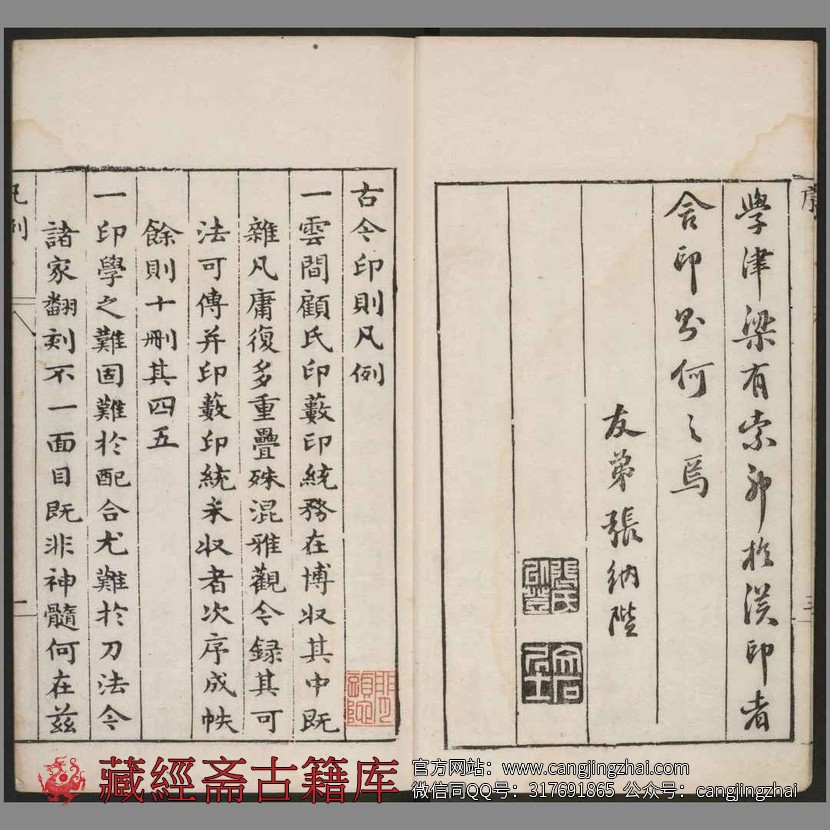 學津梁有索印於漢印者
舍印則何之焉
友弟張納陛
古今印則凡例
一雲間顧氏印藪印統務在博收其中既
雜凡庸復多重疊殊混雅觀今録其可
法可傳并印藪印統未收者次序成帙
餘則十刪其四五
一印學之難固難於配合尤難於刀法今
諸家翻刻不一面目既非神髓何在茲
凡例
一
藏經斋古籍库
官方网站：www.cangjingzhai.com
微信同QQ号：317691865 公众号：cangjingzhai